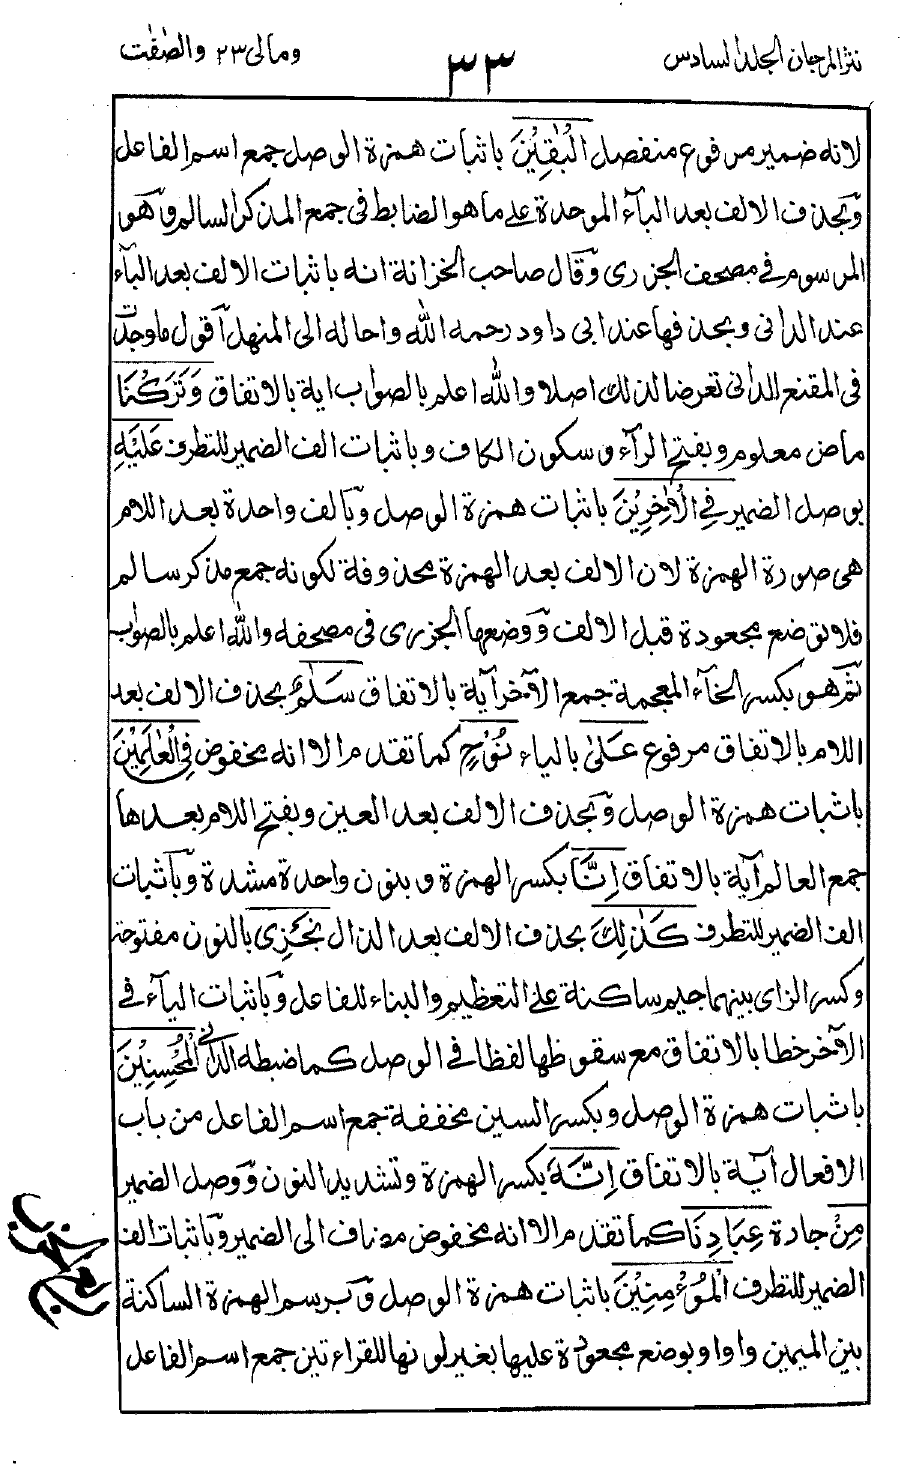 نثر المرجان الجلد السادس
٣٣
ومالی ٢٣ والصٰفٰت
لانه ضمير مرفوع منفصل الْبٰقِيْنَ باثبات همزة الوصل جمع اسم الفاعل
وبحذف الالف بعد الباء الموحدة على ما هو الضابط فی جمع المذكر السالم وهو
المرسوم فی مصحف الجزری وقال صاحب الخزانة انه باثبات الالف بعد الباء
عند الدانی وبحذفها عند ابی داود رحمه الله واحاله الی المنهل اقول ما وجدت
فی المقنع للدانی تعرضا لذلك اصلا والله اعلم بالصواب اية بالاتفاق وَتَرَكْنَا
ماض معلوم وبفتح الرآء وسكون الكاف وباثبات الف الضمير للتطرف عَلَيْهِ
بوصل الضمير فِی الْاٰخِرِيْنَ باثبات همزة الوصل وبالف واحدة بعد اللام
هی صورة الهمزة لان الالف بعد الهمزة محذوفة لكونه جمع مذكر سالم
فلا توضع مجعودة قبل الالف ووضعها الجزری فی مصحفه والله اعلم بالصواب
ثم هو بكسر الخآء المعجمة جمع الآخر آية بالاتفاق سَلٰمٌ بحذف الالف بعد
اللام بالاتفاق مرفوع عَلٰی بالياء نُوْحٍ كما تقدم الا انه مخفوض فِی الْعٰلَمِيْنَ
باثبات همزة الوصل وبحذف الالف بعد العين وبفتح اللام بعدها
جمع العالم آية بالاتفاق اِنَّا بكسر الهمزة وبنون واحدة مشددة وباثبات
الف الضمير للتطرف كَذٰلِكَ بحذف الالف بعد الذال نَجْزِی بالنون مفتوحة
وكسر الزای بينهما جيم ساكنة على التعظيم والبناء للفاعل وباثبات اليآء فی
الآخر خطا بالاتفاق مع سقوطها لفظا فی الوصل كما ضبطه الدانی الْمُحْسِنِيْنَ
باثبات همزة الوصل وبكسر السين مخففة جمع اسم الفاعل من باب
الافعال آية بالاتفاق اِنَّهٗ بكسر الهمزة وتشديد النون ووصل الضمير
مِنْ جادة عِبَادِنَا كما تقدم الا انه مخفوض مضاف الی الضمير وباثبات الف
الضمير للتطرف الْمُؤْمِنِيْنَ باثبات همزة الوصل وبرسم الهمزة الساكنة
بين الميمين واوا وبوضع مجعودة عليها بغير لونها للقراءتين جمع اسم الفاعل